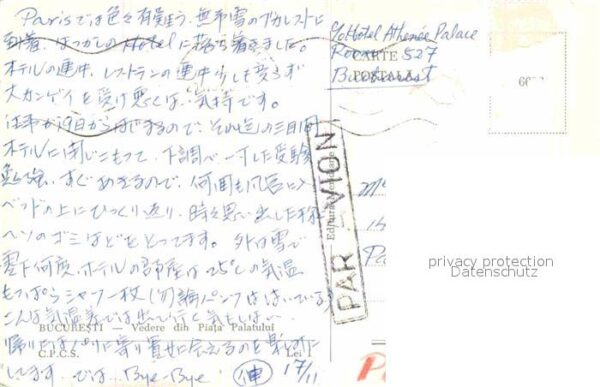 Parisでは色々有難う、無事雪のブカレストに
到着、なつかしのHotelに落ち着きました。
ホテルの連中、レストランの連中少しも変らず
大カンゲイを受け悪くはない気持です。
仕事が19日からはじまるので、その 三日間
ホテルに閉じこもって、下調べ 受験
勉強、すぐあきるので、何回も風呂に入り
ベッドの上にひっくり返り、時々思い出した様に
ヘソのゴミなどをとってます。外は雪で
零下何度、ホテルの部屋は25℃の気温
もっぱらシャツ一枚(勿論パンツははいている)
こんな気温差では出て行く気もしない。
BUCUREȘTI — Vedere din Piața Palatului
C.P.C.S.
Lei 1
帰りにはパリに寄り 会えるのを楽しみに
してます。では、Bye-Bye
伸
17/11
c/o Hôtel Athenée Palace
Room 527
Bucarest
CARTE
POSTALA
60
PAR AVION
Editura
Pa
privacy protection
Datenschutz